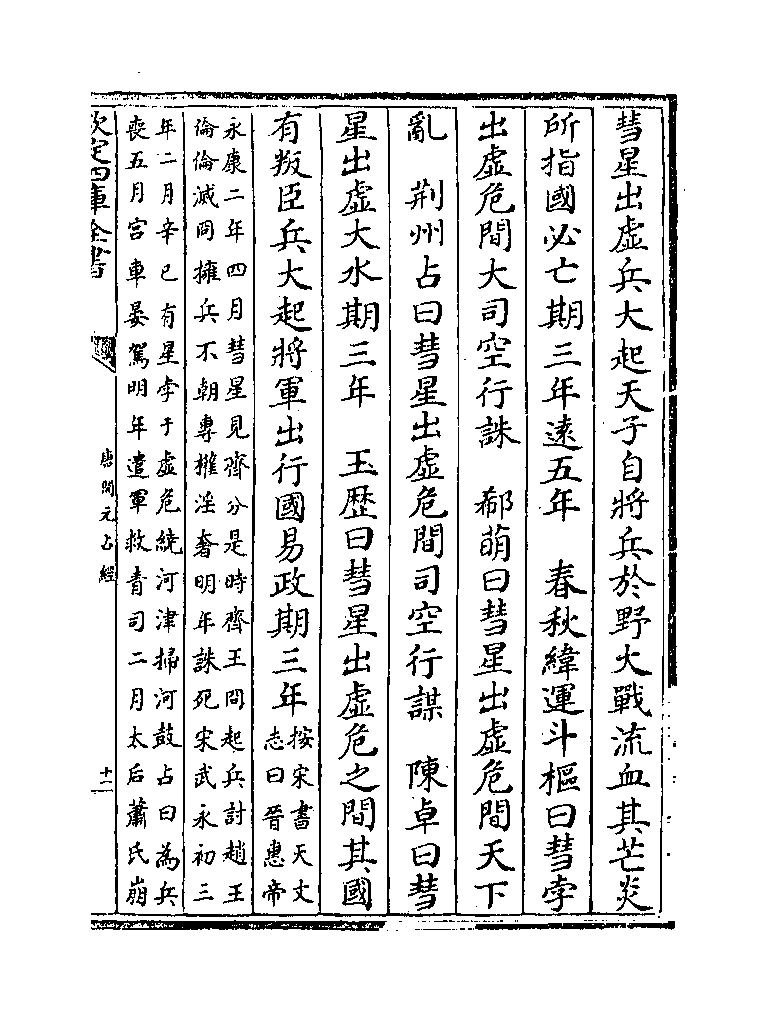 彗星出虛兵大起天子自將兵於野大戰流血其芒炎
所指國必亡期三年遠五年　春秋緯運斗樞曰彗孛
出虛危間大司空行誅　郗萌曰彗星出虛危間天下
亂　荆州占曰彗星出虛危間司空行謀　陳卓曰彗
星出虛大水期三年　玉歴曰彗星出虛危之間其國
有叛臣兵大起將軍出行國易政期三年
按宋書天文
志曰晉惠帝
永康二年四月彗星見齊分是時齊王冏起兵討趙王
倫倫滅冏擁兵不朝專權淫奢明年誅死宋武永初三
年二月辛巳有星孛于虛危繞河津掃河鼓占曰為兵
喪五月宫車晏駕明年遣軍救青司二月太后蕭氏崩
欽定四庫全書
唐開元占經
十二